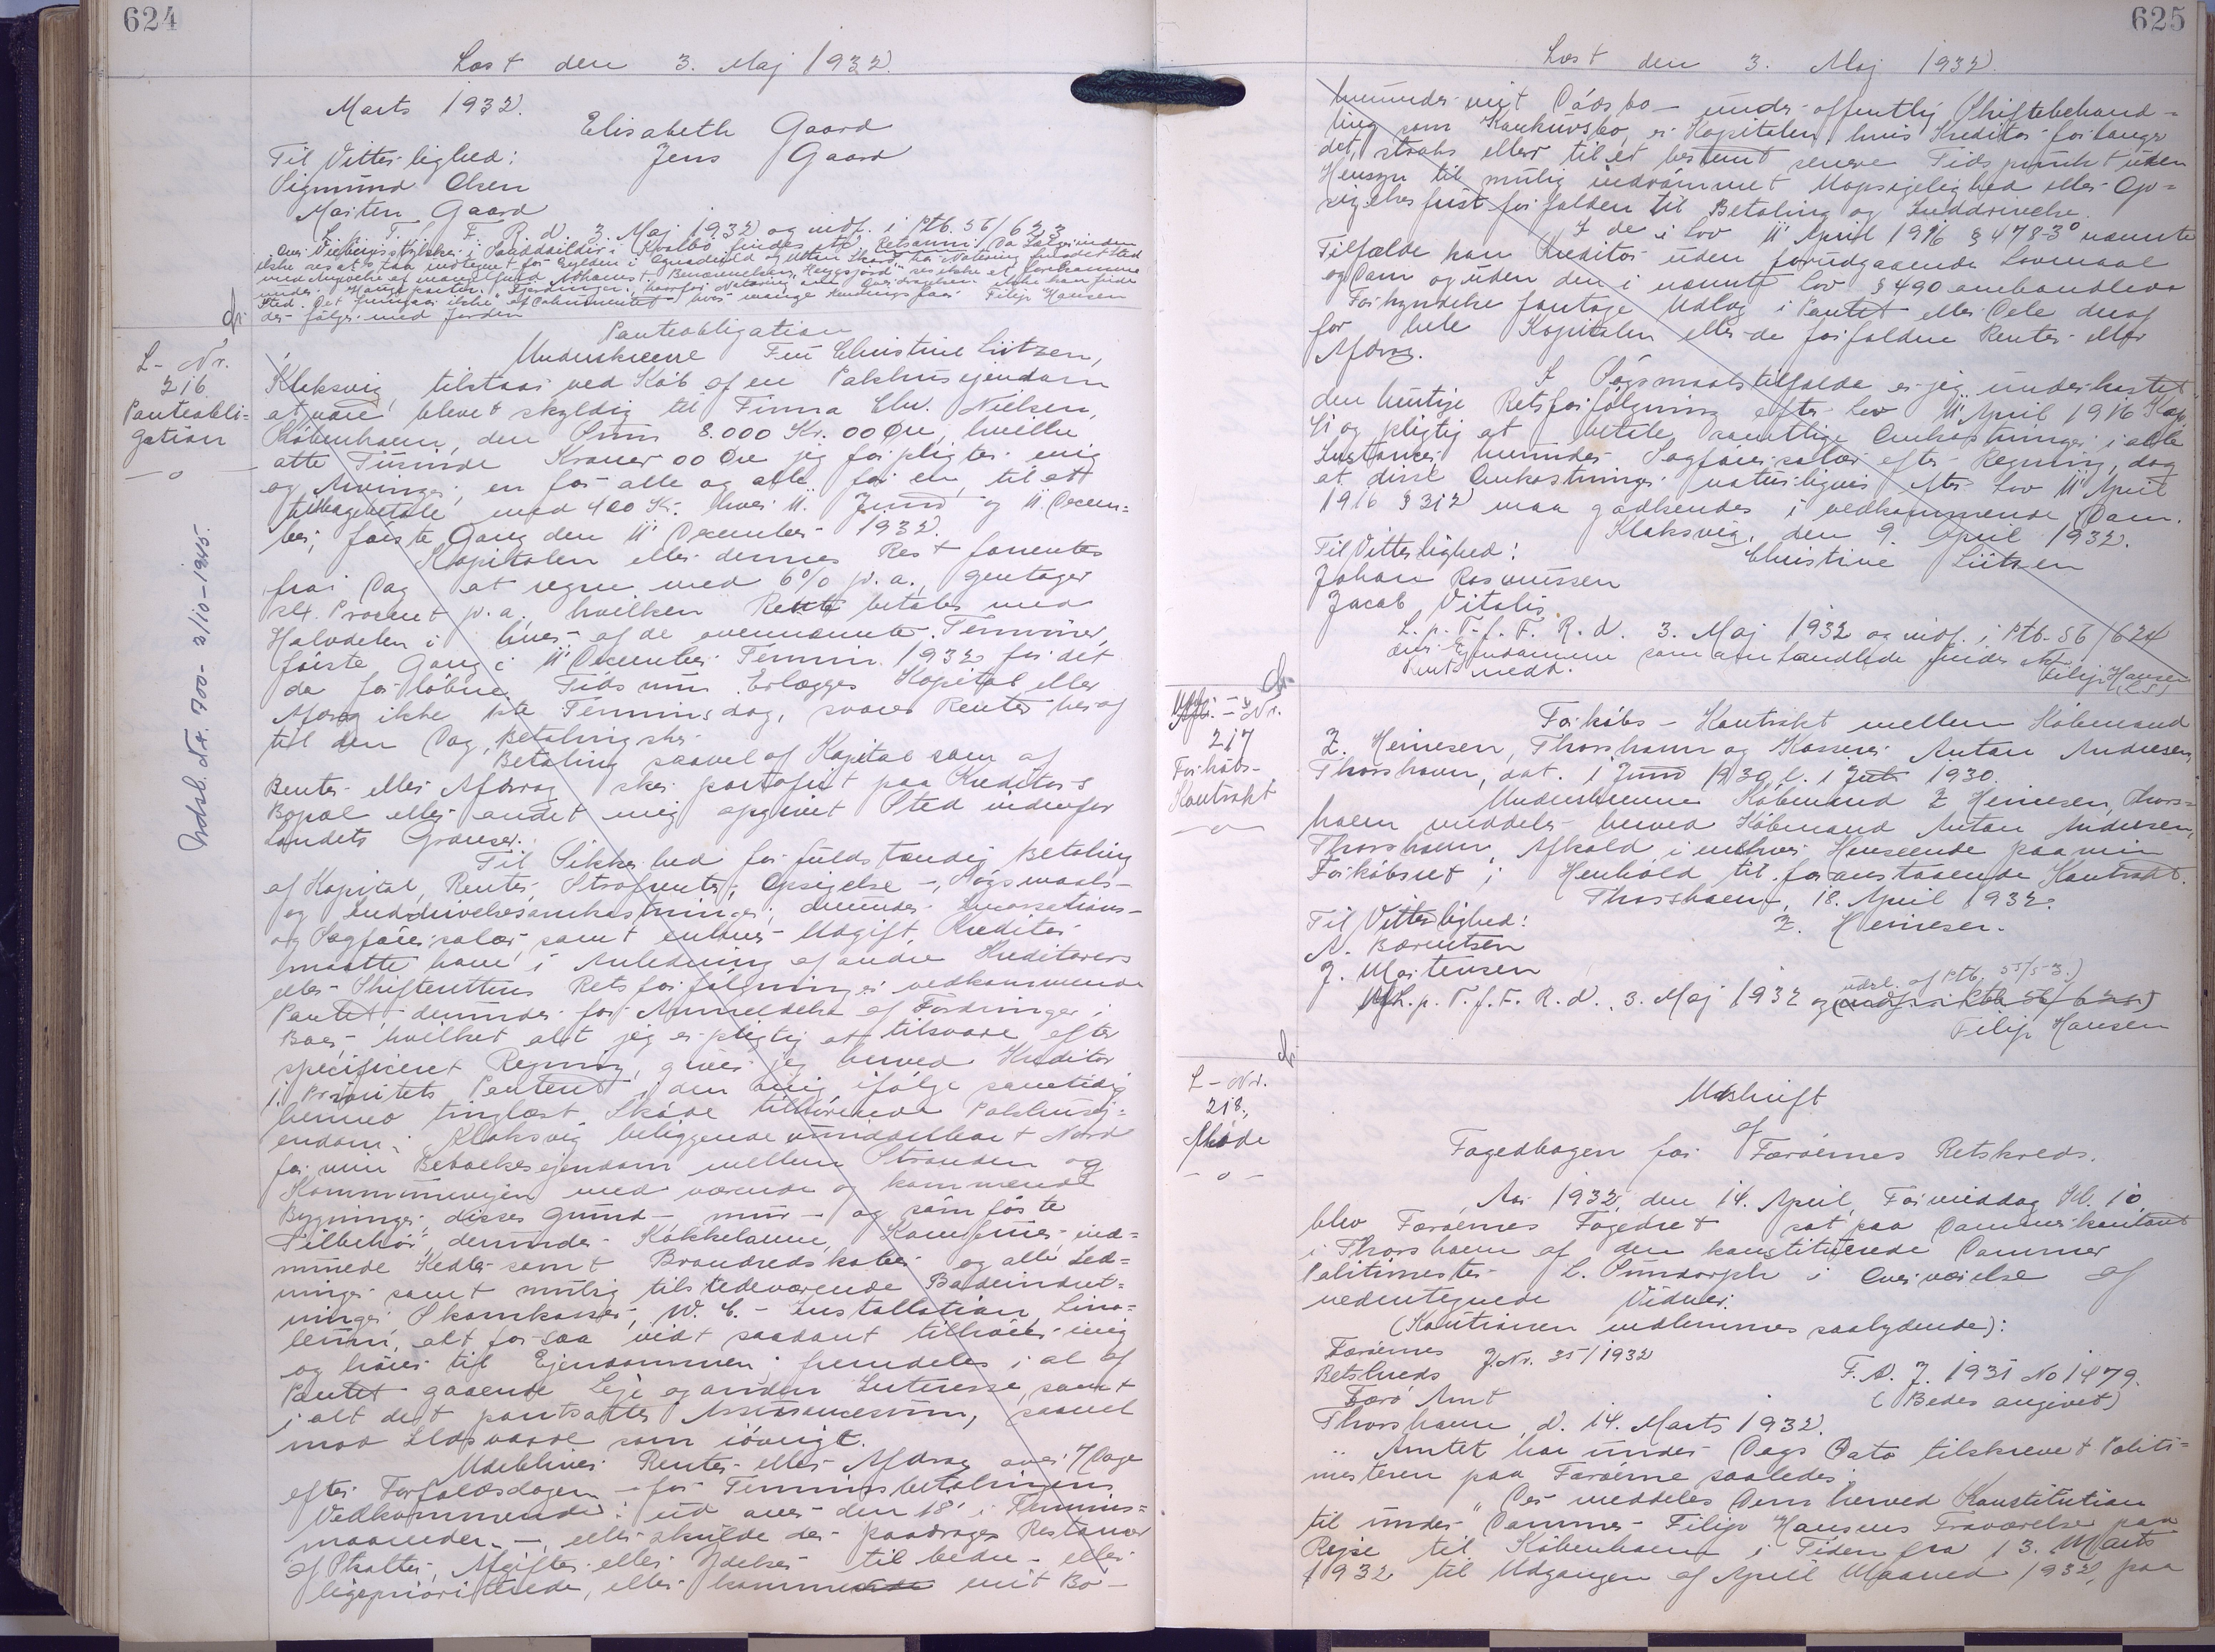 624
Læst den 3. Maj 1932.
Marts 1932.
Elisabeth Gaard
Til Vitterlighed: Jens Gaard
Sigmund Olsen
Morten Gaard
L. p. T. f. F. R. d. 3. Maj 1932 og indf. i Ptb. 56/623
der følger med Jorden Filip Hansen
L-Nr.
216
Panteobli-
gation
—o—
Udsl. Nr. 700 - 2/10-1945.
Panteobligation
Underskrevne Frü Christine Lützen,
Klaksvig, tilstaar ved Køb af en Pakhusejendom
at være blevet skyldig til Firma Chr. Nielsen,
København, den Sum 8.000 Kr. 00 Øre, hvilke
otte Tusinde Kroner 00 Øre jeg forpligter mig
og Arvinger, en for alle og alle for en, til at
tilbagebetale med 400 Kr. hver 11. Juni og 11. Decem=
ber, første Gang den 11' December 1932.
Kapitalen eller dennes Rest forrentes
fra i Dag at regne med 6% p. a., gentager
sex Procent p. a., hvilken Rente betales med
Halvdelen i hver af de ovennævnte Terminer,
første Gang i 11' December Termin 1932 for det
da forløbne Tidsrum. Erlægges Kapital eller
Afdrag ikke 1ste Terminsdag, svares Renter heraf
til den Dag, Betaling sker.
Betaling saavel af Kapital som af
Renter eller Afdrag sker portofrit paa Kreditors
Bopæl eller andet mig opgivet Sted indenfor
Landets Grænser.
Til Sikkerhed for fuldstændig Betaling
af Kapital, Renter, Strafrenter, Opsigelse -, Søgsmaals-
og Inddrivelsesomkostninger, derunder Incassations-
og Sagførersalær samt enhver Udgift, Kreditor
maatte have i Anledning af andre Kreditorers
eller Skifterettens Retsforfølgninger vedkommende
Pantet, derunder for Anmeldelse af Fordringer i
Boer - hvilket alt jeg er pligtig at tilsvare efter
specificeret Regning, giver jeg herved Kreditor
1. Prioritets Panteret i den mig ifølge samtidig
hermed tinglæst Skøde tilhørende Pakhusej=
endom i Klaksvig beliggende umiddelbart Nord
for min Beboelsesejendom mellem Stranden og
Kommunevejen med værende og kommende
Bygninger, disses grund - mur - og søm faste
Tilbehør, derunder Kakkelovne, Komfurer, ind=
murede Kedler samt Brandredskaber og alle Led=
ninger samt mulig tilstedeværende Badeindret=
ninger, Skarnkasser, W. C. - Installation, Lino=
leum, alt for saa vidt saadant tilhører mig
og hører til Ejendommen; fremdeles i al af
Pantet gaaende Leje og anden Interesse, samt
i alt det pantsattes Assurancesum, saavel
mod Ildsvaade som iøvrigt.
Udebliver Renter eller Afdrag over 7 Dage
efter Forfaldsdagen - for Terminsbetalingers
Vedkommende: ud over den 18' i Termins=
maaneden -, eller skulde der paadrages Restancer
af Skatter, Afgifter eller Ydelser til bedre - eller
ligeprioriterede, eller kommer mit Bo -
625
Læst den 3. Maj 1932.
herunder mit Dødsbo - under offentlig Skiftebehand=
ling som Konkursbo, er Kapitalen, hvis Kreditor forlanger
det, straks eller til et bestemt senere Tidspunkt uden
Hensyn til mulig indrømmet Uopsigelighed eller Op=
sigelsesfrist forfalden til Betaling og Inddrivelse.
I de i Lov 11' April 1916 § 478-3° nævnte
Tilfælde kan Kreditor uden forudgaaende Lovmaal
og Dom og uden den i nævnte Lov § 490 omhandlede
Forkyndelse foretage Udlæg i Pantet eller Dele deraf
for hele Kapitalen eller de forfaldne Renter eller
Afdrag.
I Søgsmaalstilfælde er jeg underkastet
den hurtige Retsforfølgning efter Lov 11' April 1916 Kap.
41 og pligtig at betale samtlige Omkostninger i alle
Instanser, herunder Sagførersalær efter Regning, dog
at disse Omkostninger naturligvis efter Lov 11' April
1916 § 312 maa godkendes i vedkommende Dom.
Klaksvig, den 9. April 1932.
Til Vitterlighed: Christine Lützen
Johan Rasmussen
Jacob Vitalis
L. p. T. f. F. R. d. 3. Maj 1932 og indf. i Ptb. 56/624
over Ejendommen som omhandlede findes
Filip Hansen
(L.S.)
L-Nr.
217
Forkøbs-
Kontrakt
—o—
Forkøbs - Kontrakt mellem Købmand
Z. Heinesen, Thorshavn og Kasserer Anton Andresen,
Thorshavn, dat. 1 Juni 1930, l. 1 Juli 1930.
Underskrevne Købmand Z Heinesen, Thors=
havn meddeler herved Købmand Anton Andresen,
Thorshavn, Afkald i enhver Henseende paa min
Forkøbsret i Henhold til foranstaaende Kontrakt.
Thorshavn, 18. April 1932.
Til Vitterlighed: Z. Heinesen.
A. Bærentsen
J. Mortensen
udsl. af Ptb. 55/53.)
L. p. T. f. F. R. d. 3. Maj 1932 og (indf. i Ptb 56/625)
Filip Hansen
L-Nr.
218.
Skøde
—o—
Udskrift
af
Fogedbogen for Færøernes Retskreds.
Aar 1932, den 14. April, Formiddag Kl. 10
blev Færøernes Fogedret sat paa Dommerkontoret
i Thorshavn af den konstituerede Dommer
Politimester L. Sundorph i Overværelse af
nedentegnede Vidner.
(Konstitutionen indlemmes saalydende):
Færøernes J Nr. 35/1932
Retskreds F. A. J. 1931 No 1479.
Færø Amt (Bedes angivet)
Thorshavn, d. 14. Marts 1932.
Amtet har under Dags Dato tilskrevet Politi=
mesteren paa Færøerne saaledes:
"Der meddeles Dem herved Konstitution
til under Dommer Filip Hansens Fraværelse paa
Rejse til København i Tiden fra 13. Marts
1932 til Udgangen af April Maaned 1932, paa